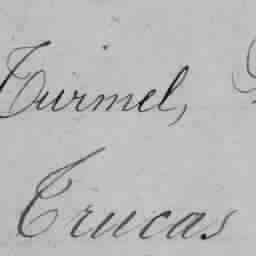 Turmel,
Trucas